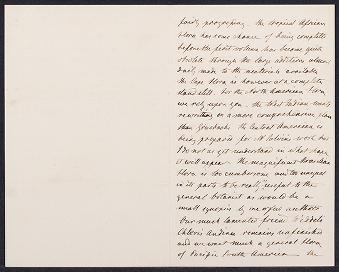 fairly progressing the tropical African
flora has some chance of being completed
before the first volume has become quite
obsolete through the large additions almost
daily made to the materials available
the Cape flora is however at a complete
stand still. for the North American flora
we rely upon you. the West Indian wants
rewriting on a more comprehensive plan
than Grisebachs the Central American is
being prepared for Mr Salvins work but
I do not as yet understand in what shape
it will appear. The magnificent Brazilian
flora is too cumbersome and too unequal
in its parts to be really useful to the
general botanist as would be a
small synopsis by one or few authors
Our much lamented friend Weddells
Chloris Andina remains unfinished
and we want much a general flora
of Pacific South America the